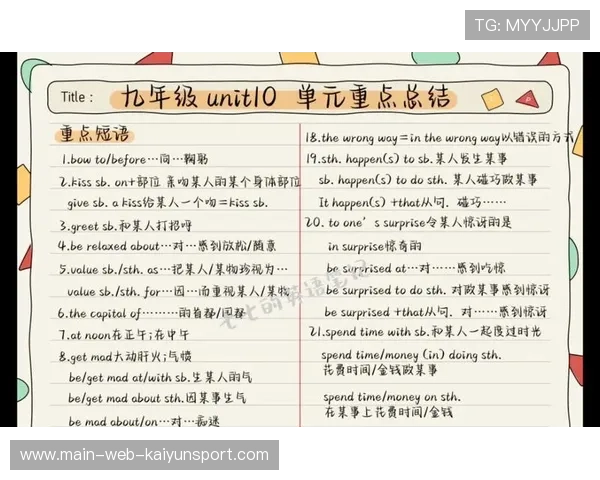 TG: MYYJJPP
Title： 九年级 unit10 单元重点总结
重点短语
1.bow to/before…向…鞠躬
2.kiss sb. on+部位 亲吻某人的某个身体部位
give sb. a kiss给某人一个吻=kiss sb.
3.greet sb.和某人打招呼
4.be relaxed about…对…感到放松/随意
5.value sb./sth. as…把某人/某物珍视为…
value sb./sth. for…因…而重视某人/某物
6.the capital of………的首都/回都
7.at noon在正午;在中午
8.get mad大动肝火;气愤
be/get mad at/with sb.生某人的气
be/get mad about sth.因某事生气
be mad about/on…对…痴迷
18.the wrong way=in the wrong way以错误的方式
19.sth. happen(s) to sb.某人发生某事
sb. happen(s) to do sth. 某人碰巧做某事
It happen(s) +that从句. 碰巧……
20. to one's surprise令某人惊讶的是
in surprise惊奇的
be surprised at…对……感到吃惊
be surprised to do sth. 对做某事感到惊讶
be surprised +that从句. 对…感到惊讶
21.spend time with sb.和某人一起度过时光
spend time/money (in) doing sth.
花费时间/金钱做某事
spend time/money on sth.
在某事上花费时间/金钱
www-main-web-kaiyunsport.com